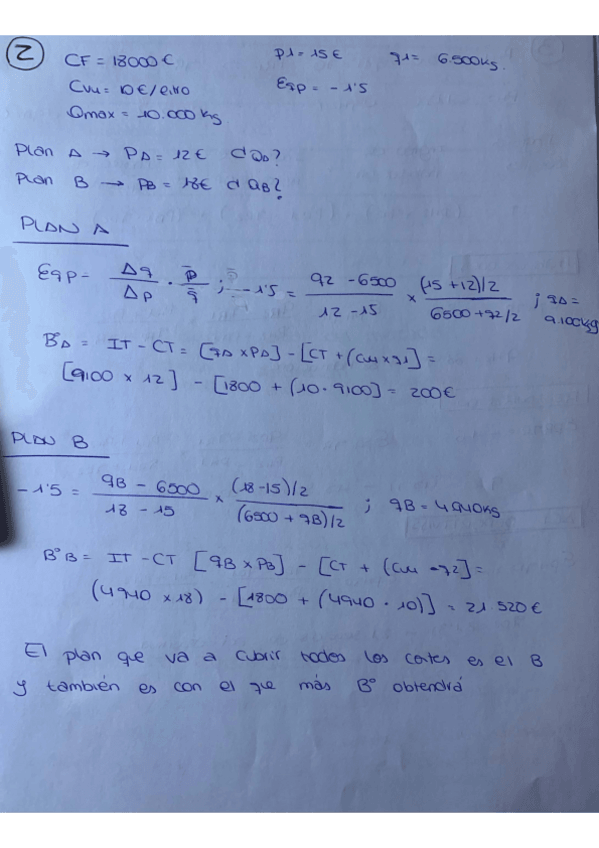 2
CF = 18000€ p1 = 15€ q1 = 6.500kg
Cvu = 10€/kilo Eqp = -1'5
Qmax = 10.000 kg
Plan A → PA = 12€ d QA?
Plan B → PB = 18€ d QB?
PLAN A
Eqp = Δq/Δp · p̄/q̄ ; -1'5 = (q2 - 6500)/(12 - 15) × ((15 + 12)/2)/(6500 + q2/2) ; qA = 9.100kg
BºA = IT - CT = [qA x PA] - [CT + (Cvu x q1] =
[9100 x 12] - [1800 + (10 · 9100] = 200€
PLAN B
-1'5 = (qB - 6500)/(18 - 15) × ((18 - 15)/2)/((6500 + qB)/2) ; qB = 4.940kg
BºB = IT - CT [qB x PB] - [CT + (Cvu · q2] =
(4940 x 18) - [1800 + (4940 · 10)] = 21.520€
El plan que va a cubrir todos los costes es el B
y también es con el que más Bº obtendrá